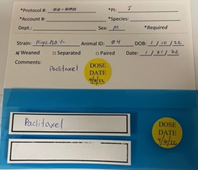 *Protocol #: *PI: I
*Account #: *Species:
Dept.: Sex: M *Required
Strain: Animal ID: #4 DOB: 1/10/22
Weaned Separated Paired Date: 1/31/22
Comments:
Paclitaxel
DOSE
DATE
Paclitaxel
DOSE
DATE